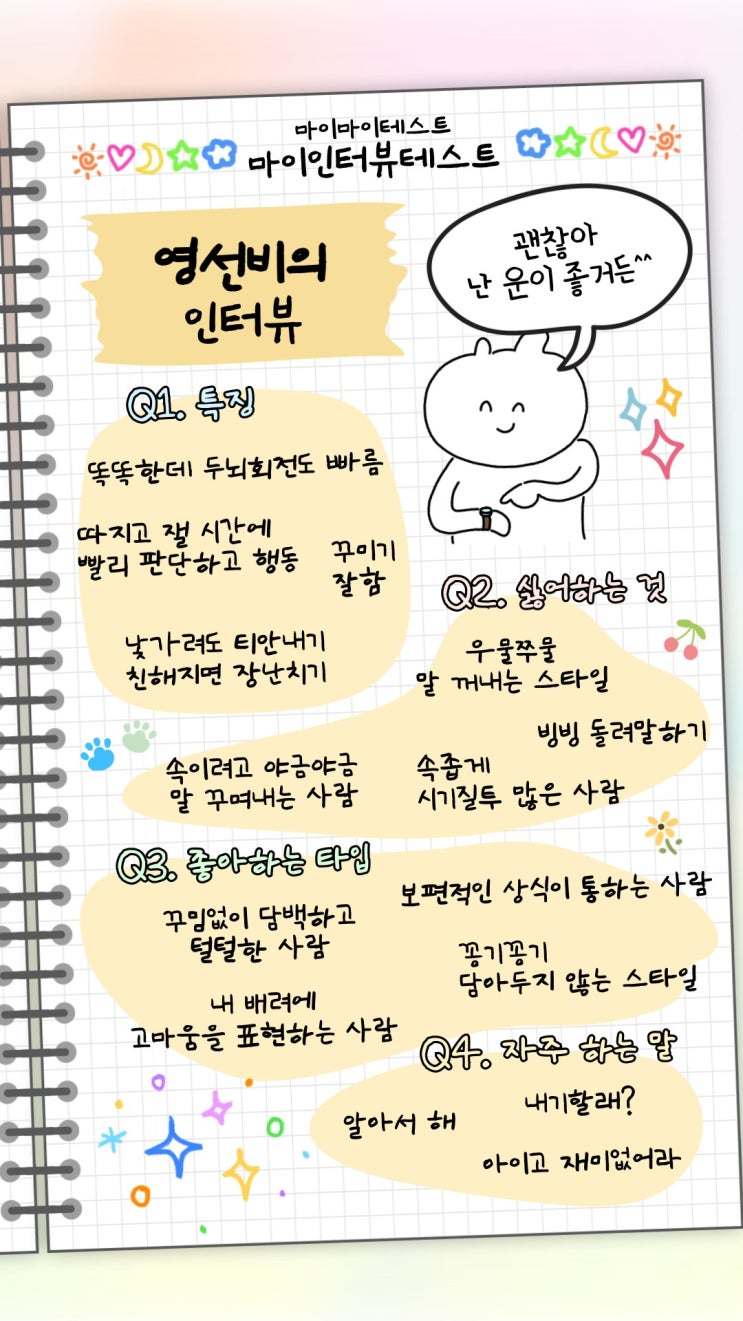 마이마이테스트
마이인터뷰테스트
영선비의
인터뷰
괜찮아
난 운이 좋거든^^
Q1. 특징
똑똑한데 두뇌회전도 빠름
따지고 잴 시간에
빨리 판단하고 행동
꾸미기
잘함
낯가려도 티안내기
친해지면 장난치기
Q2. 싫어하는 것
우물쭈물
말 꺼내는 스타일
빙빙 돌려말하기
속이려고 야금야금
말 꾸며내는 사람
속좁게
시기질투 많은 사람
Q3. 좋아하는 타입
꾸밈없이 담백하고
털털한 사람
보편적인 상식이 통하는 사람
꽁기꽁기
담아두지 않는 스타일
내 배려에
고마움을 표현하는 사람
Q4. 자주 하는 말
알아서 해
내기할래?
아이고 재미없어라